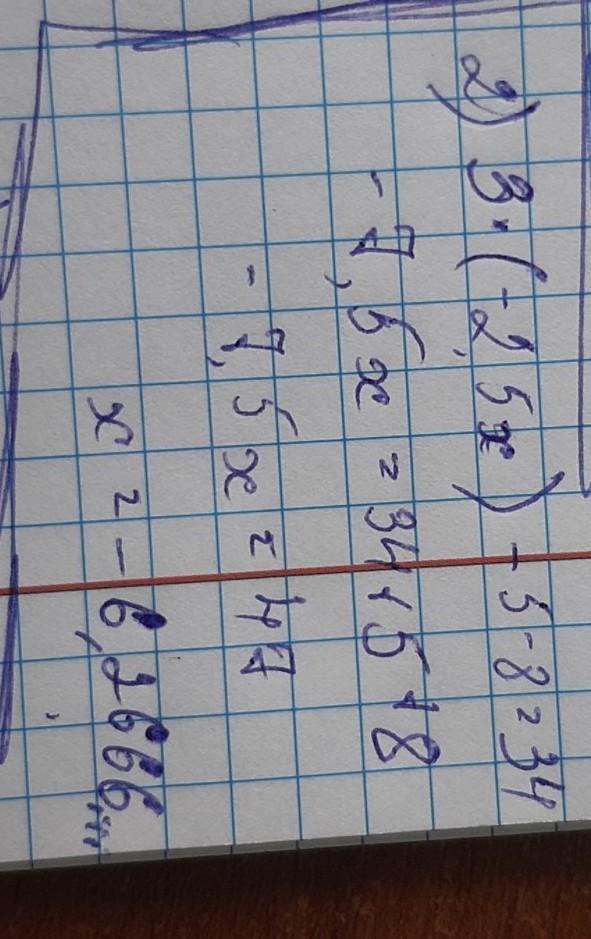 2) 3·(-2,5x)-5-8=34
-7,5x=34+5+8
-7,5x=47
x=-6,2666...